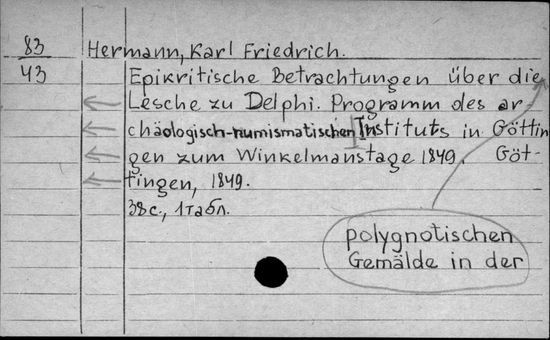 83
43
Hermann, Karl Friedrich.
Epikritische Betrachtungen über die
Lesche zu Delphi. Programm des ar-
chäologisch-numismatischen Instituts in Göttin
gen zum Winkelmanstage 1849. Göt-
tingen, 1849.
38 с., 1 табл.
polygnotischen
Gemälde in der